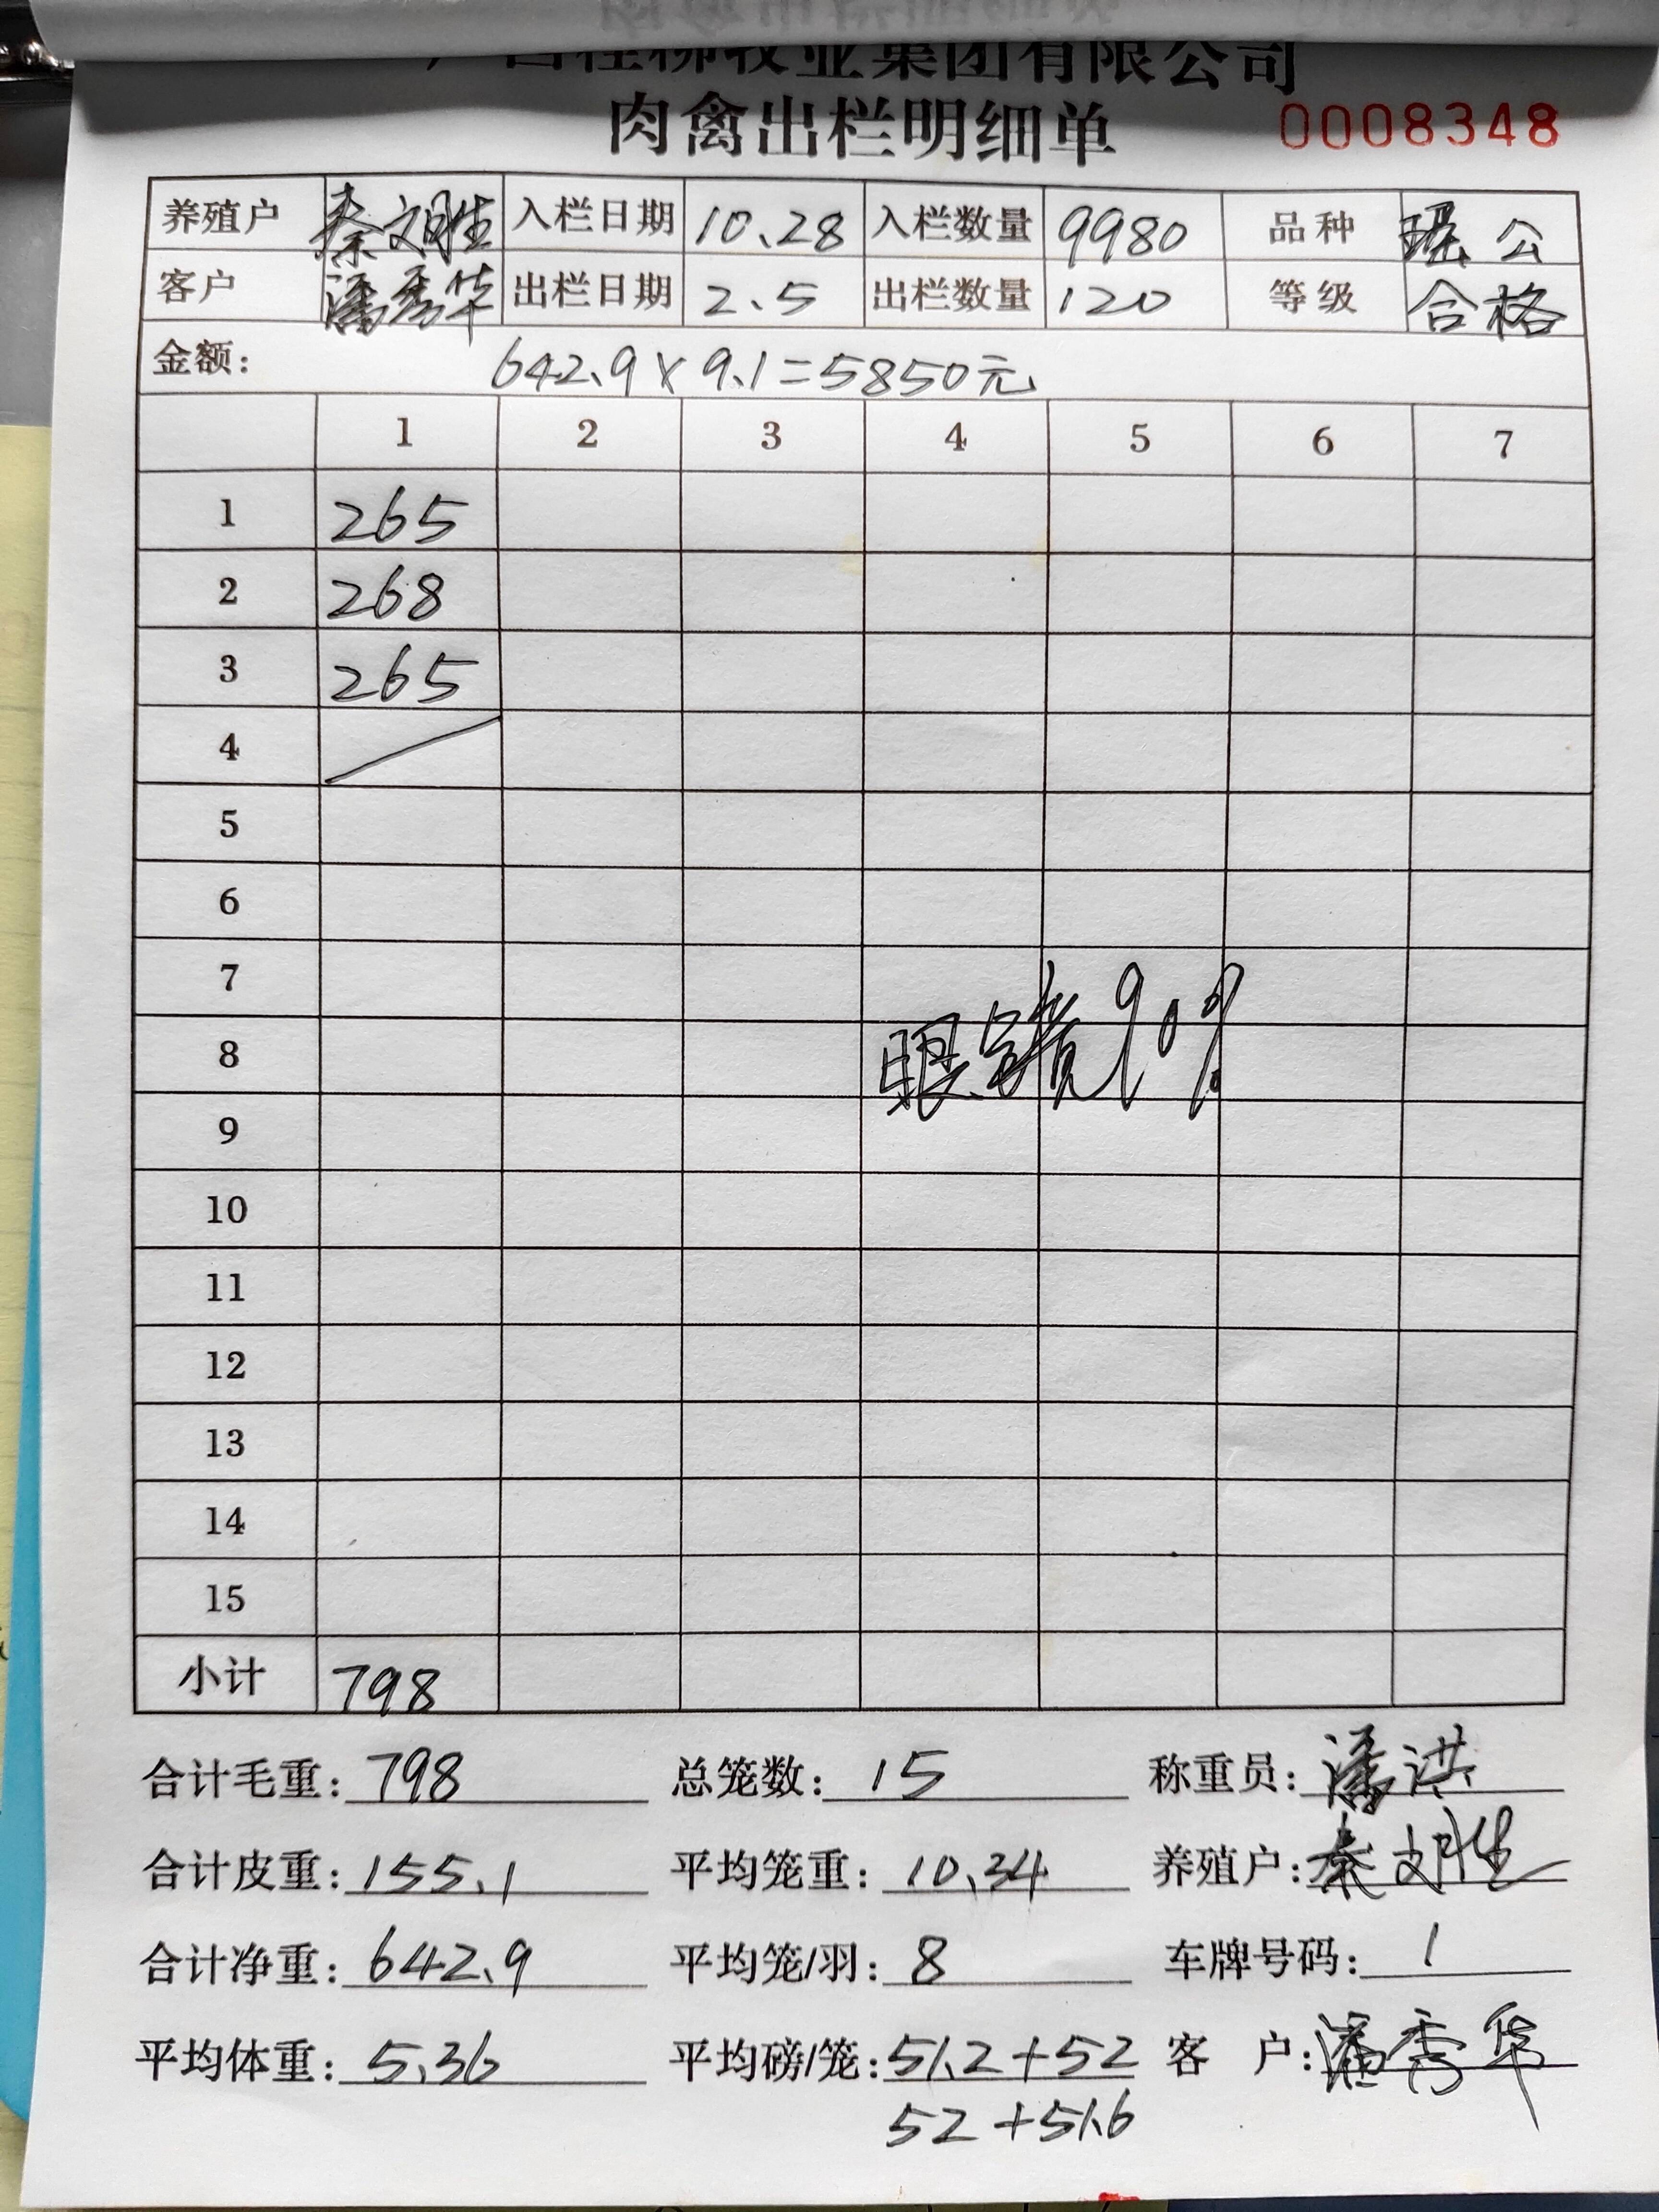 广西桂柳牧业集团有限公司
肉禽出栏明细单 0008348
养殖户 秦文胜 入栏日期 10.28 入栏数量 9980 品种 瑶公
客户 潘秀华 出栏日期 2.5 出栏数量 120 等级 合格
金额: 642.9×9.1=5850元
1 2 3 4 5 6 7
1 265
2 268
3 265
4
5
6
7
8 眼睛90%
9
10
11
12
13
14
15
小计 798
合计毛重: 798 总笼数: 15 称重员: 潘洪
合计皮重: 155.1 平均笼重: 10.34 养殖户: 秦文胜
合计净重: 642.9 平均笼/羽: 8 车牌号码: 1
平均体重: 5.36 平均磅/笼: 51.2+52 客 户: 潘秀华
52+51.6